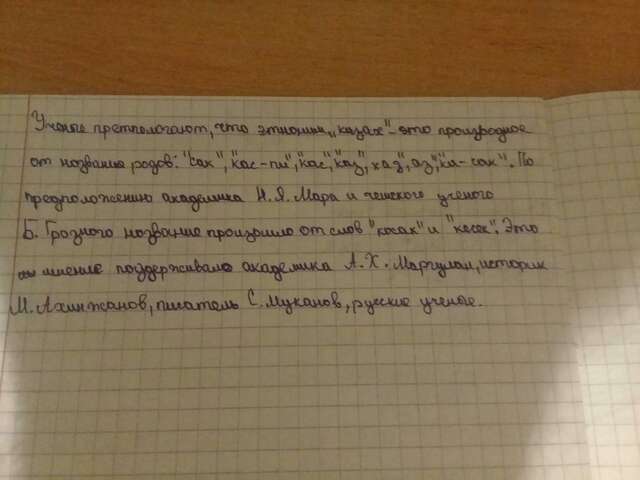 Ученые претпологают, что этноним „казах"- это произродное
от названия родов: "сак", "кас-пи", "кас", "каз", "хаз", "аз", "ка-сак". По
предположению академика Н.Я. Мара и чешского ученого
Б. Грозного название произошло от слов "косак" и "кесек". Это
мнение поддерживало академика А.Х. Маргулан, историк
М. Ахинжанов, писатель С. Муканов, русские ученые.